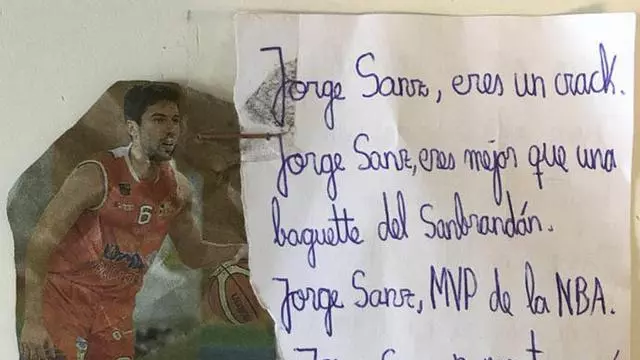 Jorge Sanz, eres un crack.
Jorge Sanz, eres mejor que una
baguette del Sanbrandán.
Jorge Sanz, MVP de la NBA.
6